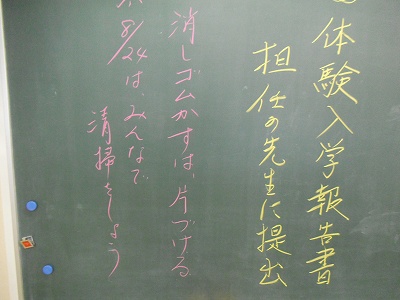 体験入学報告書
担任の先生に提出
消しゴムかすは、片づける
8/24は、みんなで
清掃をしよう